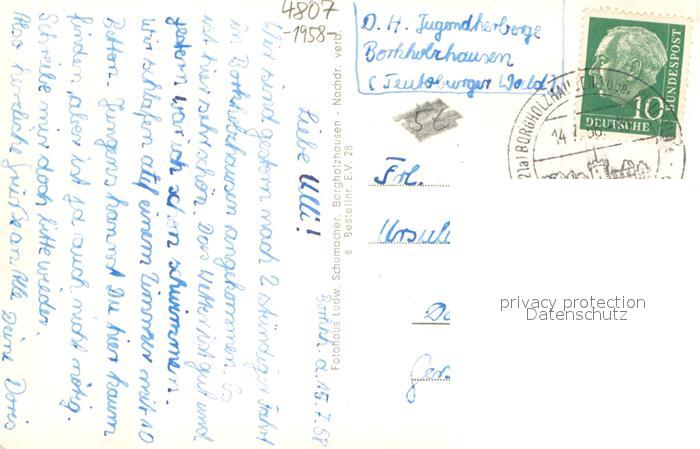 4807
-1958-
D. H. Jugendherberge
Borkholzhausen
(Teutoburger Wald)
10
DEUTSCHE
BUNDESPOST
(21a) BORGHOLZHAUSEN
14.7.58
52
Frl.
Ursul
Borkh. d. 15.7.58
Liebe Ulli!
Wir sind gestern nach 2 stündiger Fahrt
in Borkholzhausen angekommen. Es
ist hier sehr schön. Das Wetter ist gut und
gestern war ich schon schwimmen.
Wir schlafen auf einem Zimmer mit 10
Betten. Jungens kannst Du hier kaum
finden, aber ist ja auch nicht nötig.
Schreibe mir doch bitte wieder.
Also herzliche Grüße an Alle Deine Doris
Fotohaus Ludw. Schumacher, Borgholzhausen - Nachdr. verb.
S Bestellnr. E.V. 28
privacy protection
Datenschutz